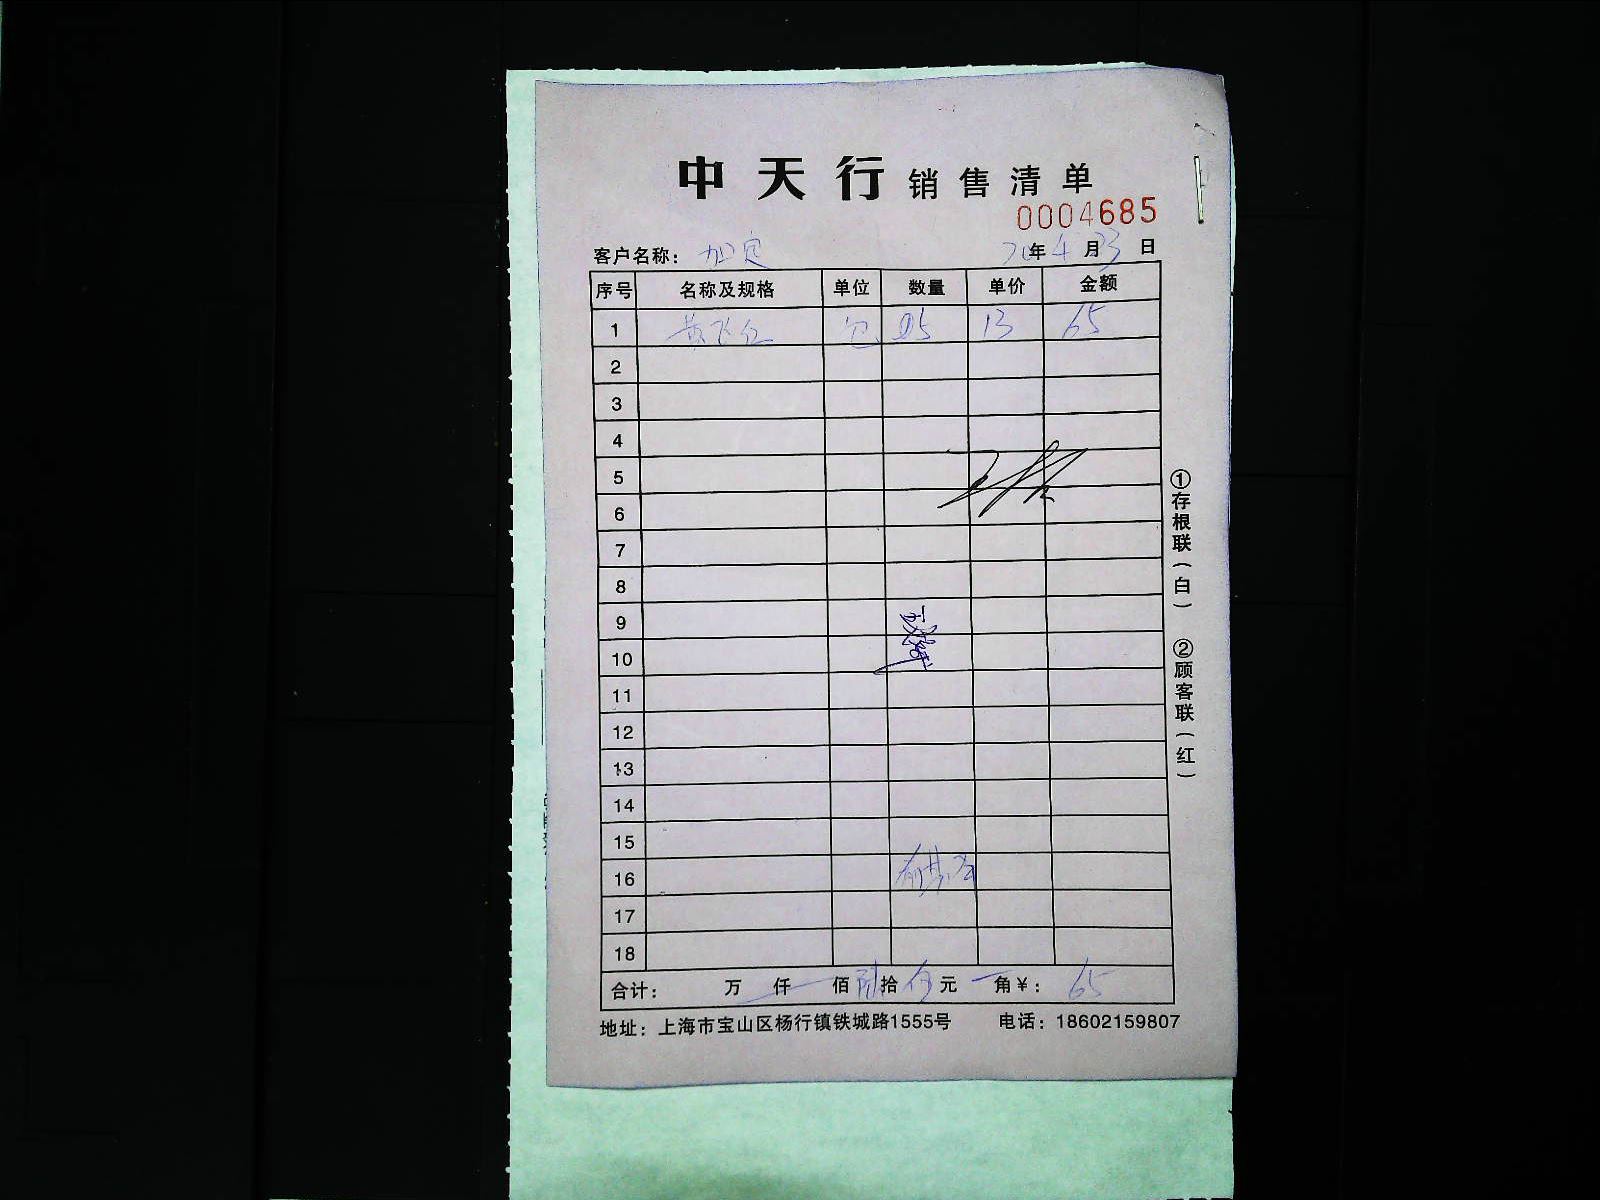 中天行销售清单
0004685
客户名称： 加定 20年4月23日
序号 名称及规格 单位 数量 单价 金额
1 黄飞红 包 5 13 65
2
3
4
5
6
7
8
9
10
11
12
13
14
15
16
17
18
合计： 万 仟 佰 陆拾伍元 角￥： 65
地址：上海市宝山区杨行镇铁城路1555号 电话：18602159807
①存根联（白） ②顾客联（红）